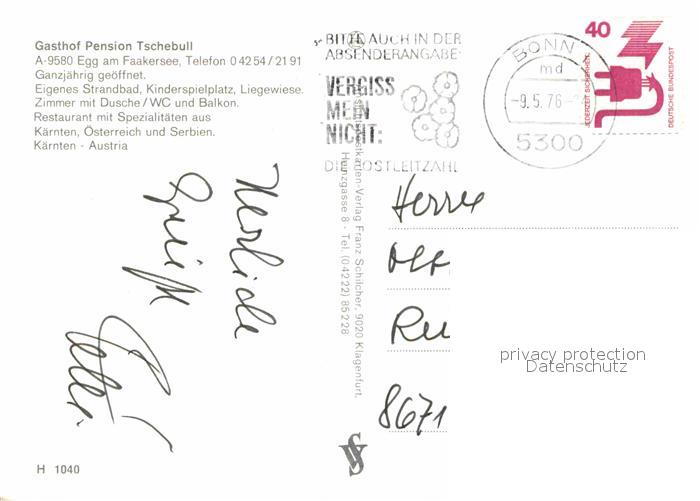 Gasthof Pension Tschebull
A-9580 Egg am Faakersee, Telefon 0 42 54 / 21 91
Ganzjährig geöffnet.
Eigenes Strandbad, Kinderspielplatz, Liegewiese.
Zimmer mit Dusche / WC und Balkon.
Restaurant mit Spezialitäten aus
Kärnten, Österreich und Serbien.
Kärnten - Austria
BITTE AUCH IN DER
ABSENDERANGABE
VERGISS
MEIN
NICHT:
DIE POSTLEITZAHL
BONN
md
-9.5.76-
5300
40
JEDERZEIT SICHERHEIT
DEUTSCHE BUNDESPOST
Ansichtskarten-Verlag Franz Schilcher, 9020 Klagenfurt,
Heinzgasse 8 - Tel. (0 42 22) 85 2 28
Herzliche
Grüße
Herrn
8671
privacy protection
Datenschutz
H 1040